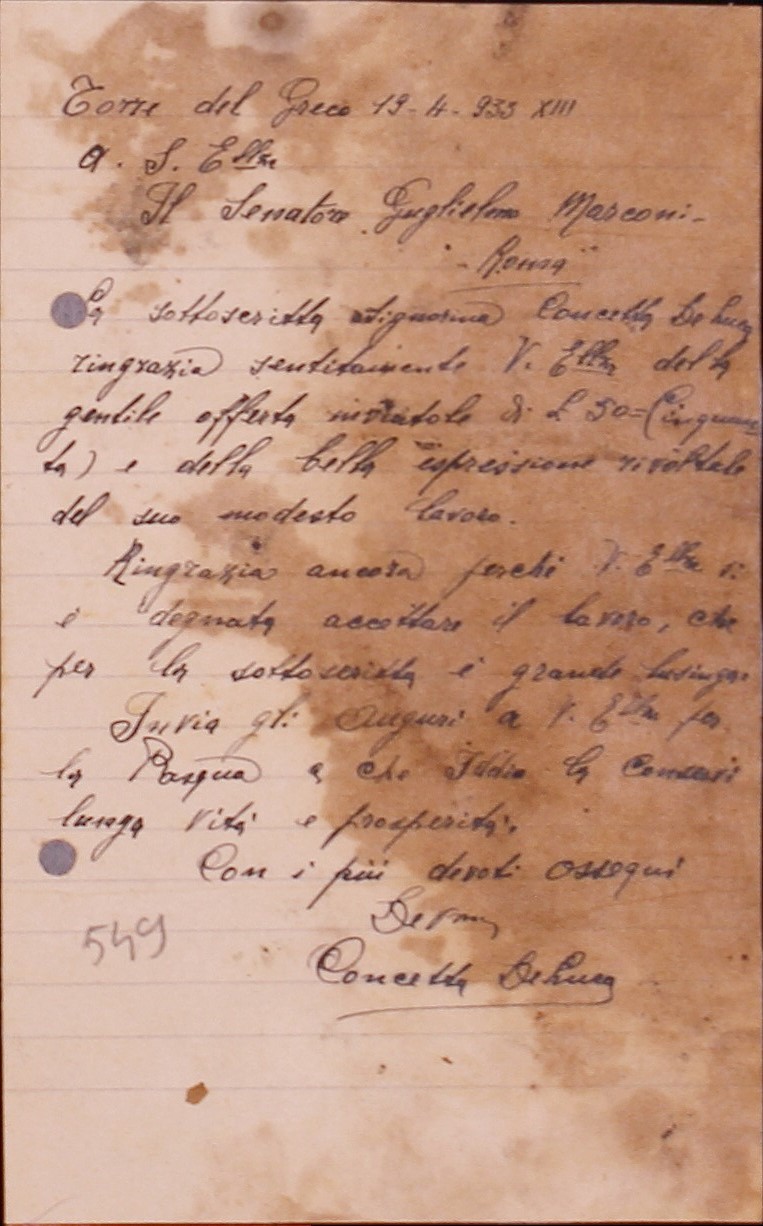 Torre del Greco 19-4-935 XIII
A. S. Ellza
Il Senatore Guglielmo Marconi -
- Roma
La sottoscritta Signorina Concetta De Luca
ringrazia sentitamente V. Ellza della
gentile offerta inviatole di £ 50= (Cinquan
ta) e della bella espressione rivoltale
del suo modesto lavoro.
Ringrazia ancora perchè V. Ellza si
è degnata accettare il lavoro, che
per la sottoscritta è grande lusinga.
Invia gli auguri a V. Ellza per
la Pasqua e che Iddio la conservi
lunga vita e prosperità.
Con i più devoti ossequi
Dev.ma
Concetta De Luca
549